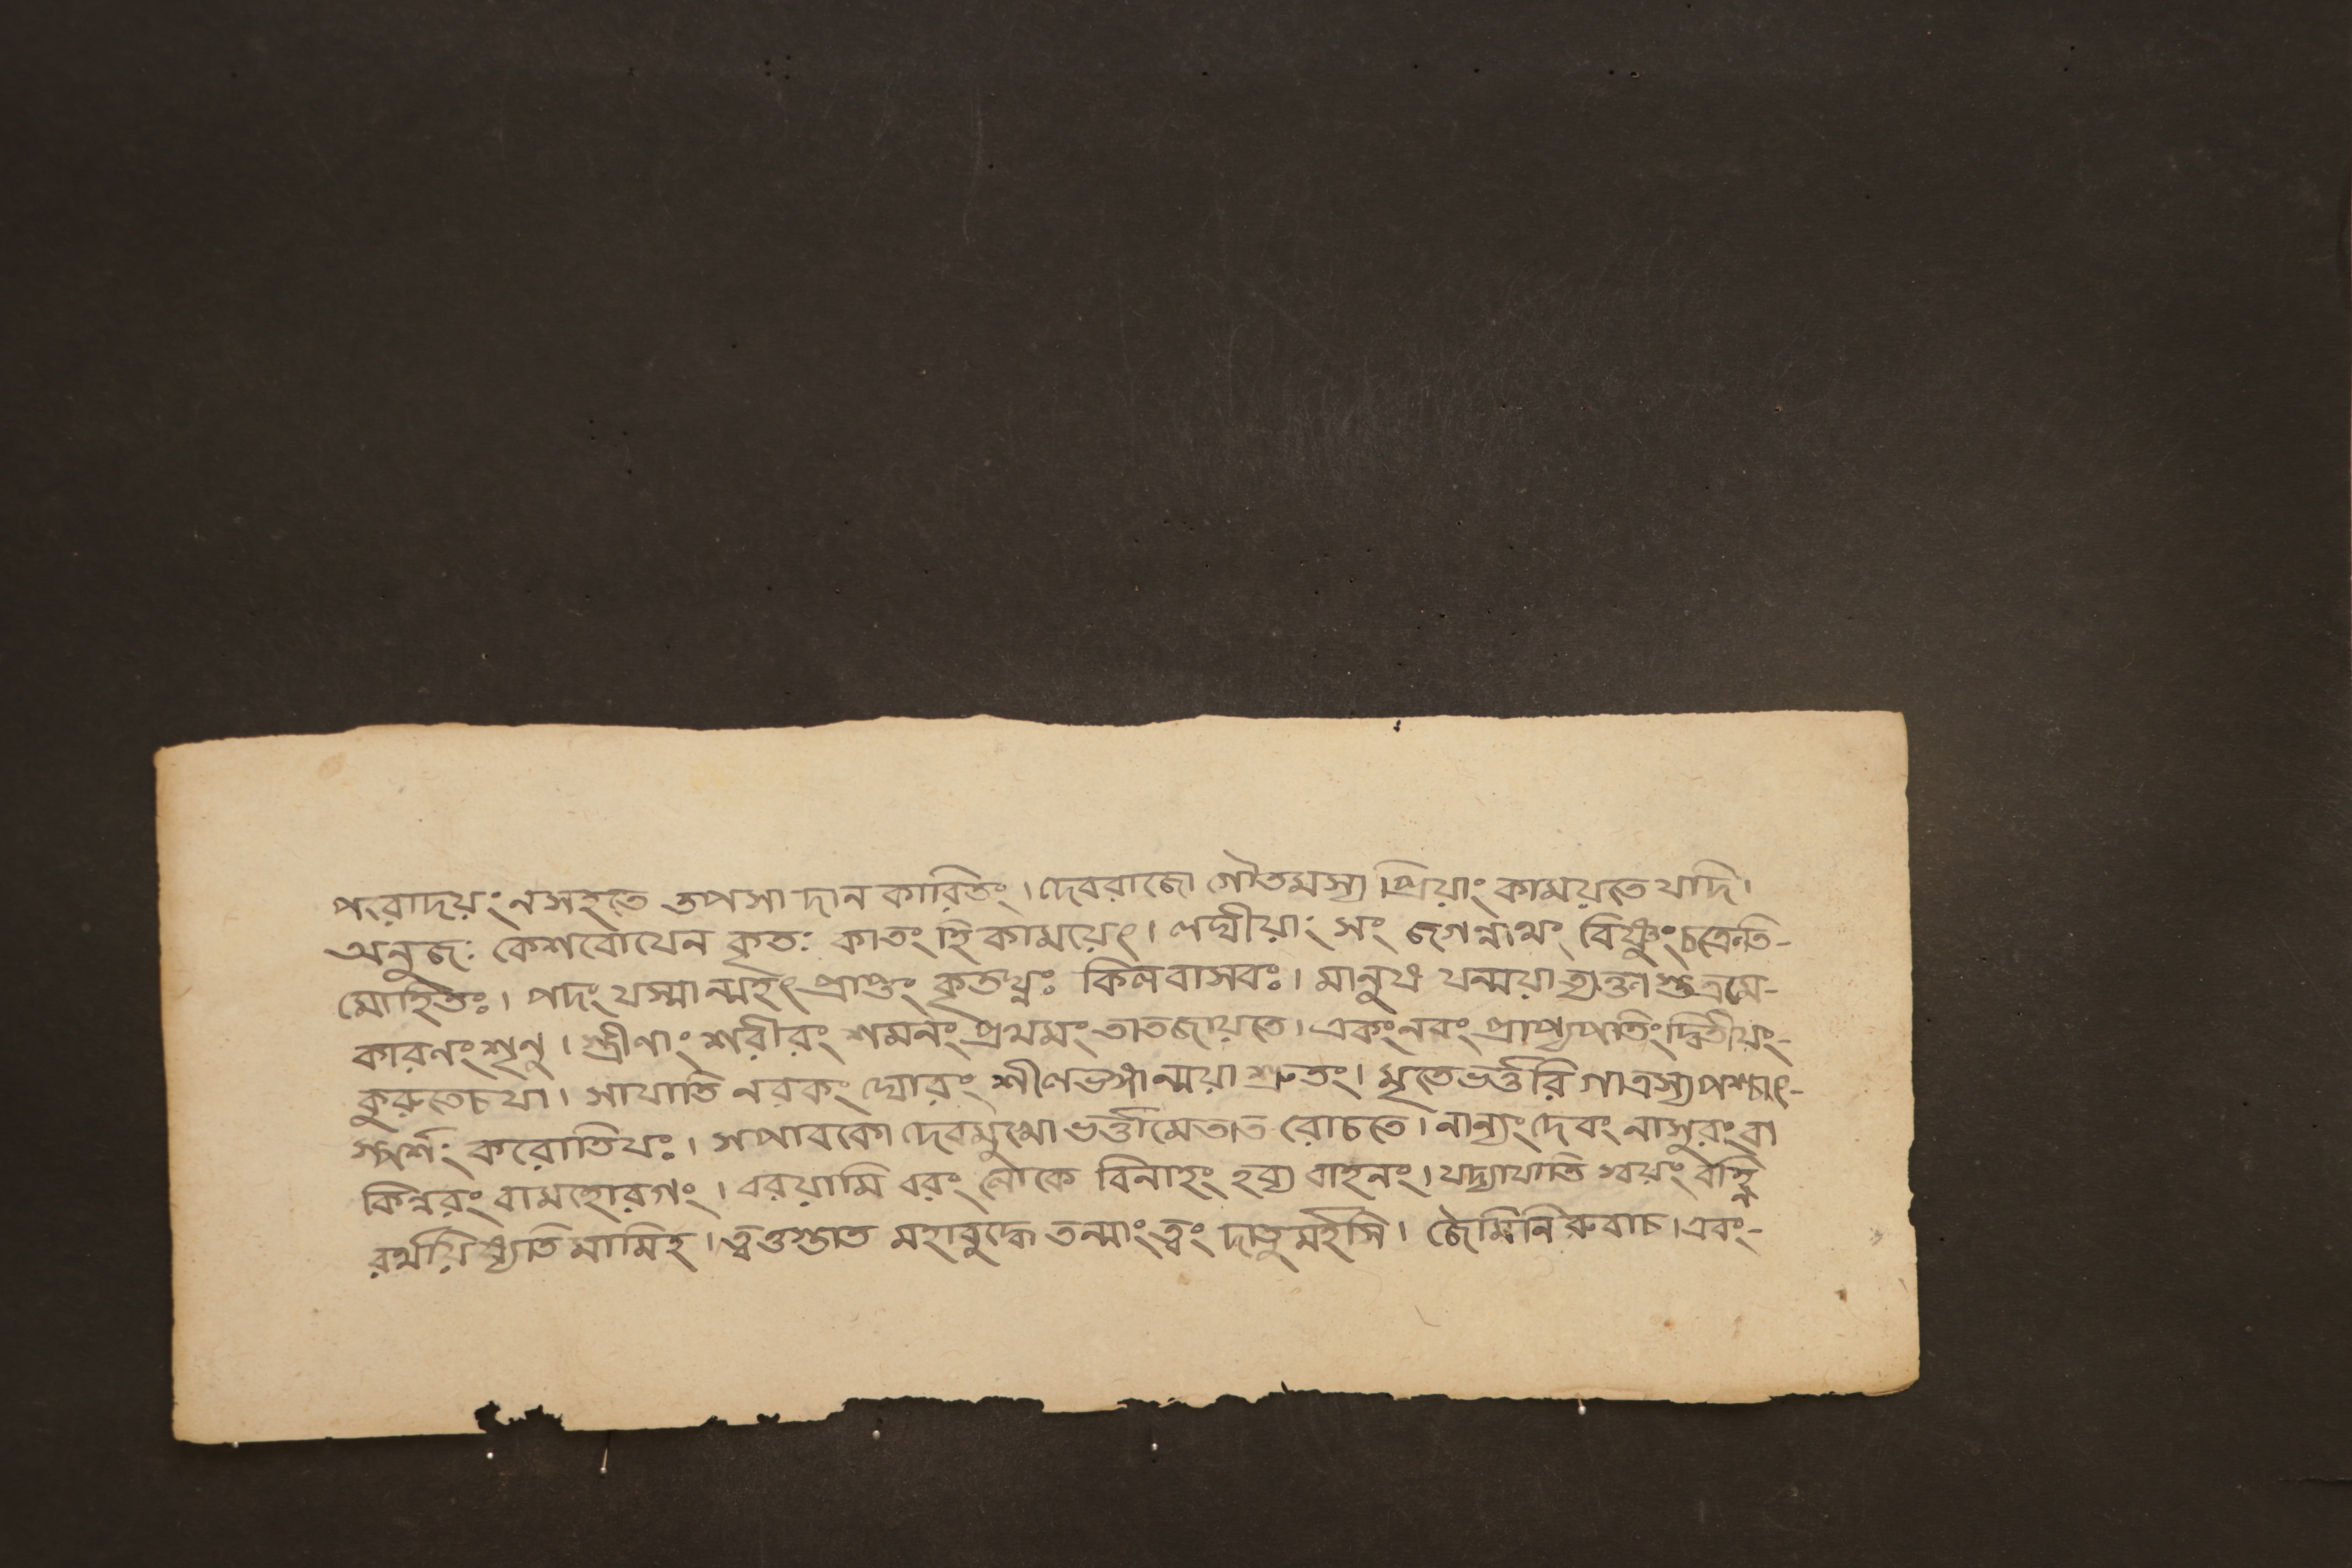 পংরাদয়ং নসহতে তপসা দান কারিতং। দেবরাজো গৌতমস্য প্রিয়াং কাময়তে যদি।
অনুজঃ কেশবোযেন কৃতঃ কাতং হি কাময়েৎ। লঘীয়াং সং জগন্নাথং বিষ্ণুং চক্রেতি-
মোহিতঃ। পদং যস্মান্মহৎ প্রাপ্তং কৃতঘ্নঃ কিলবাসবঃ। মানুষ যন্ময়া ত্যক্তা শুত্রমে-
কারণং শৃনু। স্ত্রীণাং শরীরং শমনং প্রথমং তাতজায়তে। একংনরং প্রাপ্যপতিং দ্বিতীয়ং-
কুরুতেচ যা। সাযাতি নরকং ঘোরং শীলভঙ্গান্ময়া শ্রুতং। মৃতেভর্ত্তরি গাত্রস্য পশ্চাৎ-
স্পর্শং করোতিযঃ। সপাবকো দেবমুখো ভর্ত্তামেতাত রোচতে। নান্যং দেবং নাসুরং বা
কিন্নরং বামহোরগং। বরয়ামি বরং লোকে বিনাহং হব্য বাহনং। যদ্যাযাতি স্বয়ং বহ্নি
রর্থয়িষ্যতি মামিহ। ত্বওস্তাত মহাবুদ্ধে তন্মাংত্বং দাতুমর্হসি। জৈমিনি রুবাচ। এবং-